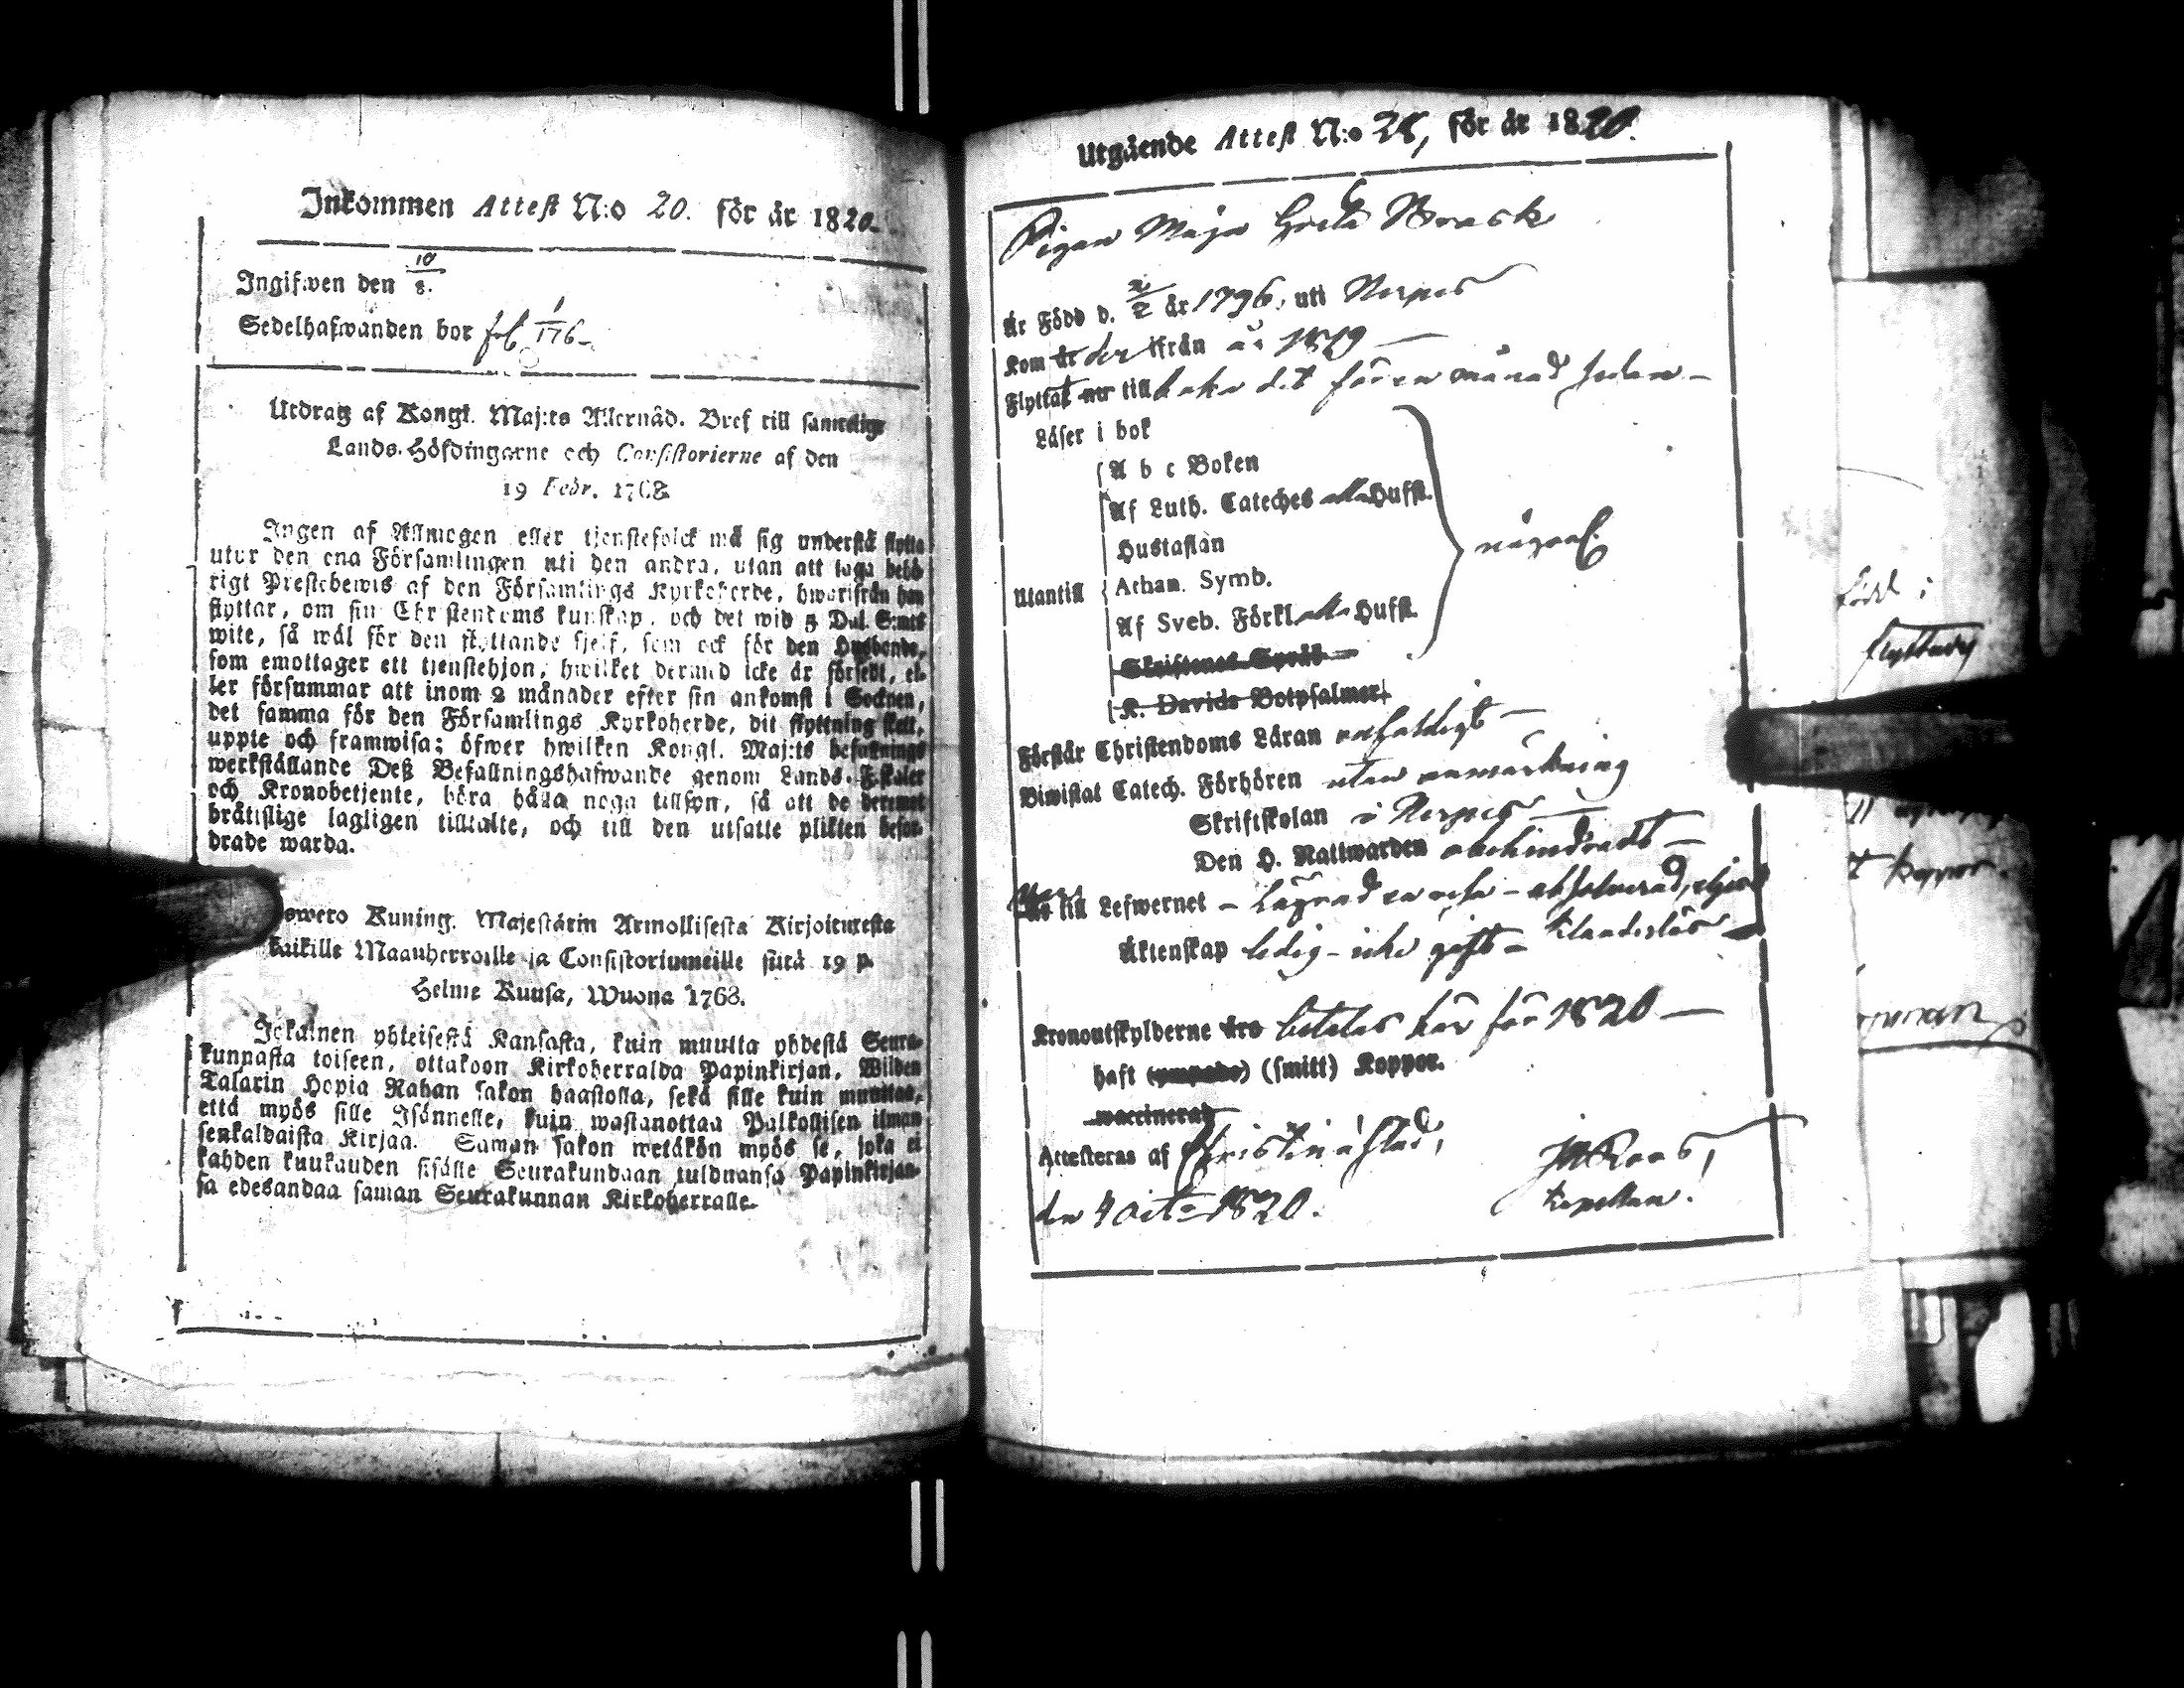 Inkommen Attest N:o 20. för år 1820.
Ingifwen den 10/8.
Sedelhafwanden bor fol 1/176
Utdrag af Kongl. Maj:ts Allernåd. Bref till samtelige
Lands-Höfdingarne och Consistorierne af den
19 Febr. 1768.
Ingen af Allmogen eller tjenstefolck må sig understå flytta
utur den ena Församlingen uti den andra, utan att taga behö-
rigt Prestebewis af den Församlings Kyrkoherde, hwarifrån han
flyttar, om sin Christendoms kunskap, och det wid 5 Dal. S:mts
wite, så wäl för den flyttande sjelf, som ock för den Husbonde,
som emottager ett tjenstehjon, hwilket dermed icke är försedt, el-
ler försummar att inom 2 månader efter sin ankomst i Socknen,
det samma för den Församlings Kyrkoherde, dit flyttning skett,
uppte och framwisa; öfwer hwilken Kongl. Maj:ts befallnings
werkställande Deß Befallningshafwande genom Lands-Fiskaler
och Kronobetjente, böra hålla noga tillsyn, så att de deremot
brätislige lagligen tilltalte, och till den utsatte plikten befor-
drade warda.
owero Kuning. Majestärin Armollisesta Kirjoituresta
kaikille Maanherroille ja Consistoriumeille siitä 19 p.
Helme Kuusa, Wuona 1768.
Jokainen yhteisestä Kansasta, kuin muutta yhdestä Seura-
kunnasta toiseen, ottakoon Kirkoherralda Papinkirjan, Wiiden
Talarin Hopia Rahan sakon haastolla, sekä sille kuin muuttaa,
että myös sille Isännelle, kuin wastanottaa Palkollisen ilman
senkaldaista Kirjaa. Saman sakon wetäkön myös se, joka ei
kahden kuukauden sisälle Seurakundaan tuldnansa Papinkirjan-
sa edesandaa saman Seurakunnan Kirkoherralle.
Utgående Attest N:o 28, för år 1820.
Pigan Maja Greta Brask
Är Född d. /2 år 1796, uti Nerpes
Kom år der ifrån år 1819
Flyttat nu tillbaka dit för en månad sedan
Läser i bok
A b c Boken
Af Luth. Cateches alla Hufst.
Hustaflan
någorl.
Utantill Athan. Symb.
Af Sveb. Förkl alla Hufst.
Skriftenes Språk
K. Davids Botpsalmer
Förstår Christendoms Läran enfaldigt
Biwistat Catech. Förhören utan anmärkning
Skriftskolan i Nerpes
Den H. Nattwarden obehindradt
till Lefwernet - Lägrad en resa - absolverad,
Äktenskap ledig - icke gift - klanderlös
Kronoutskylderne äro betalas här för 1820
haft (ympade) (smitt) Koppor.
waccinerad
Attesteras af Christinæstad,
den 4 Oct. 1820.
Roos,
Kapellan.
född i
flyttade
t koppor.